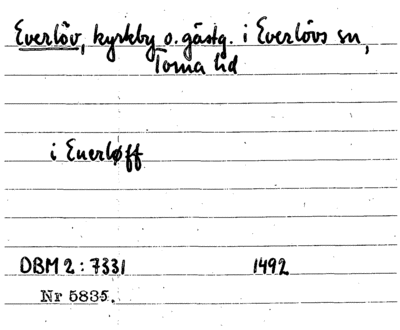 Everlöv, kyrkby o. gästg. i Everlövs sn,
Torna hd
i Euerløff
DBM 2: 7331 1492
Nr 5835.